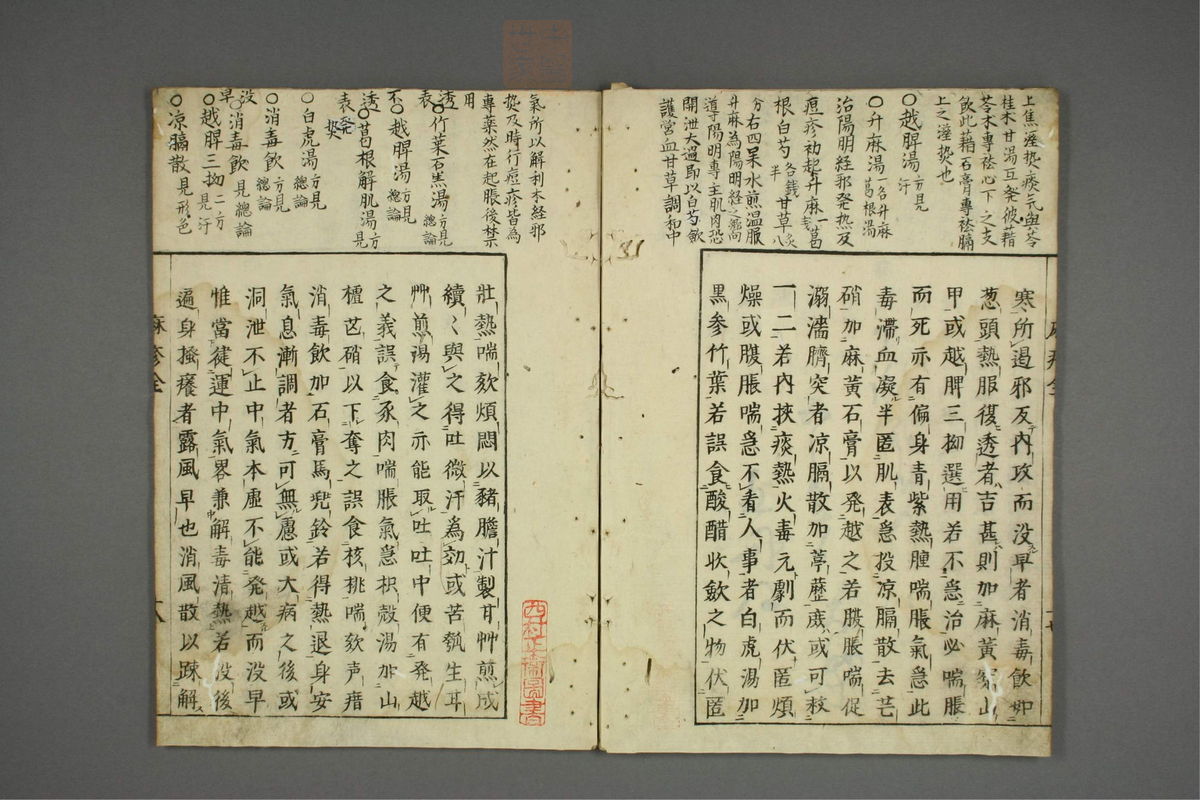 上焦溼熱痰氣無苓
桂木甘湯互癸彼藉
苓木專祛心下之支
飲此藉石膏專祛膈
上之溼熱也
○越脾湯 方見汗
○升麻湯 一名升麻葛根湯
治陽明経邪発热及
痘疹初起升麻一錢葛
根白芍各錢半甘草炙八
分右四味水煎温服
升麻為陽明経之
導陽明專主肌肉恐
開泄大過即以白芍歛
護営血甘草調和中
寒所遏邪反內攻而没早者消毒飲加
葱頭熱服復透者吉甚則加麻黃穿山
甲或越脾三拗選用若不急治必喘脹
而死亦有偏身青紫熱腫喘脹氣急此
毒滯血凝半匿肌表急投凉膈散去芒
硝加麻黃石膏以発越之若腹脹喘促
溺濇臍突者凉膈散加葶藶或可救
一二若內挾痰熱火毒元劇而伏匿煩
燥或腹脹喘急不看人事者白虎湯加
黒參竹葉若誤食酸醋收歛之物伏匿
氣所以解利木経邪
热及時行痘疹皆為
專薬然在起脹後禁
用
○竹葉石羔湯 方見總論
透表
○越脾湯 方見總論
不透
○葛根解肌湯 方見
表発热
○白虎湯 方見總論
○消毒飲 方見總論
没早
○消毒飲 見總論
○越脾三拗 二方見汗
○凉膈散 見形色
壯熱喘欬煩悶以豬膽汁製甘艸煎成
續〻與之得吐微汗為効或苦瓠生耳
艸煎湯灌之亦能取吐吐中便有発越
之義誤食豕肉喘脹氣急枳殻湯加山
樝芒硝以下奪之誤食核桃喘欬声瘖
消毒飲加石膏馬兜鈴若得熱退身安
氣息漸調者方可無慮或大病之後或
洞泄不止中氣本虛不能発越而没早
惟當健運中氣畧兼解毒清熱若没後
遍身搔癢者露風早也消風散以踈解
麻疹全
十八